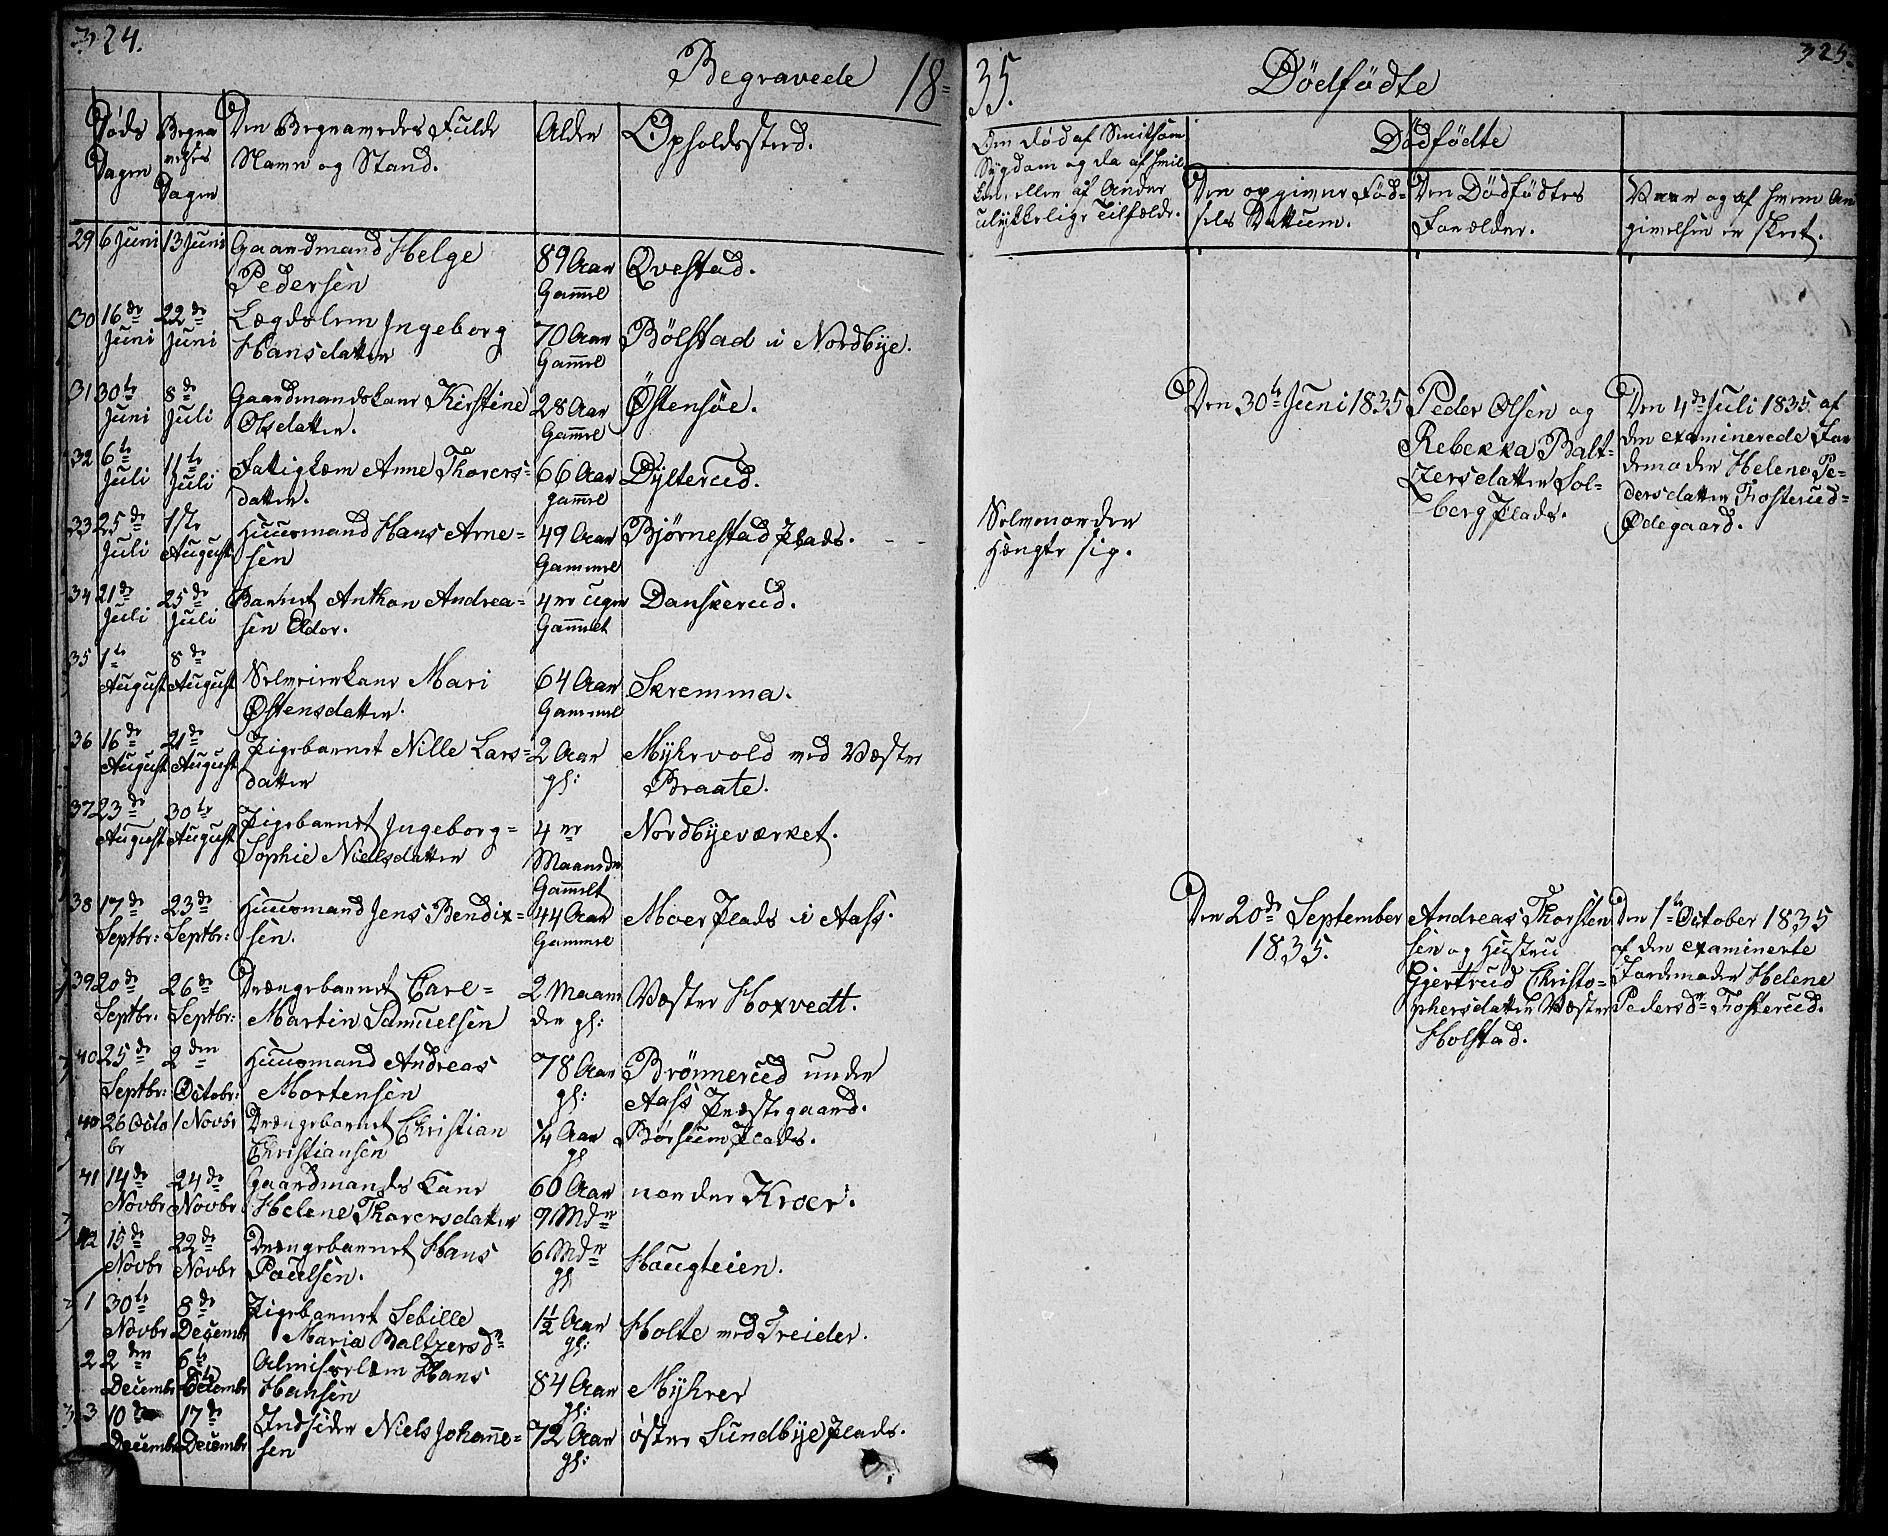 324.
Begravede 18-
Døds Dagen
Begravelses Dagen
Den Begravedes Fulde
Navn og Stand.
Alder
Opholdssted.
29 6 Juni 13 Juni Gaardmand Helge Pedersen 89 Aar Gammel Qvestad.
30 16de Juni 22de Juni Lægdslem Ingeborg Hansdatter 70 Aar Gammel Bølstad i Nordbye.
31 30te Juni 8de Juli Gaardmandskone Kirstine Olsdatter. 28 Aar Gammel Østensøe.
32 6te Juli 11te Juli Fatiglem Anne Thorersdatter. 66 Aar gammel Dÿlterud.
33 25de Juli 1ste August Huusmand Hans Arnesen 49 Aar Gammel Bjørnestad Plads.
34 21de Juli 25de Juli Barnet Anthon Andreasen Eldor. 4re Uger Gammelt Danskerud.
35 1te August 8de August Selveierkone Mari Østensdatter. 64 Aar Gammel Skremma.
36 16de August 21de August Pigebarnet Nille Larsdatter 2 Aar gl: Mÿhrvold ved Væster Braate.
37 23de August 30te August Pigebarnet Ingeborg Sophie Nielsdatter 4re Maaneder Gammelt Nordbyeværket.
38 17de Septbr: 23de Septbr: Huusmand Jens Bendixsen. 44 Aar Gammel Moer Plads i Aass.
39 20de Septbr. 26de Septbr: Drængebarnet Carl Martin Samuelsen 2 Maaneder gl: Væster Hoxvedt.
40 25de Septbr: 2den Octobr: Huusmand Andreas Mortensen 78 Aar gl: Brönnerud under Aass Præstegaard.
40 26 Octobr 1 Novbr Drængebarnet Christian Christiansen 1/4 Aar gl Børsum Plads.
41 14de Novbr 24de Novbr Gaardmands Kone Helene Thorersdatter 60 Aar 9 Mdr nordre Kroer.
42 15de Novbr 22de Novbr Drængebarnet Hans Paulsen. 6 Mdr gl Haugteien.
1 30te Novbr 8de Decembr Pigebarnet Sebille Maria Baltzersdr 1 1/2 Aar gl: Holte ved Dreider.
2 2den Decembr 6te Decembr Almisselem Hans Hansen 84 Aar gl: Mÿhrer
3 10de Decembr 17de Decembr Indsider Niels Johannesen 72 Aar gl: øster Sundbÿe Plads.
35.
Dödfödte
325.
Om død af Smitsom
Sygdom og da af hvil
ken, eller af Andre
ulykkelige Tilfælde.
Dödfödte
Den opgivne Fød-
sels Dattum.
Den Dødfødtes
Forælder.
Naar og af hvem An
givelsen er skeet.
Selvmorder
Hængte sig.
Den 30te Juni 1835
Peder Olsen og
Rebekka Balt-
zersdatter Sol-
berg Plads.
Den 4de Juli 1835 af
den examinerede Jor
demoder Helene Pe-
dersdatter Frosterud-
Ødegaard.
Den 20de September
1835.
Andreas Thorsten
sen og Hustru
Gjertrud Christo-
phersdatter Væster
Holstad.
Den 1te October 1835
af den examinerte
Jordemoder Helene
Pedersdr Frosterud.